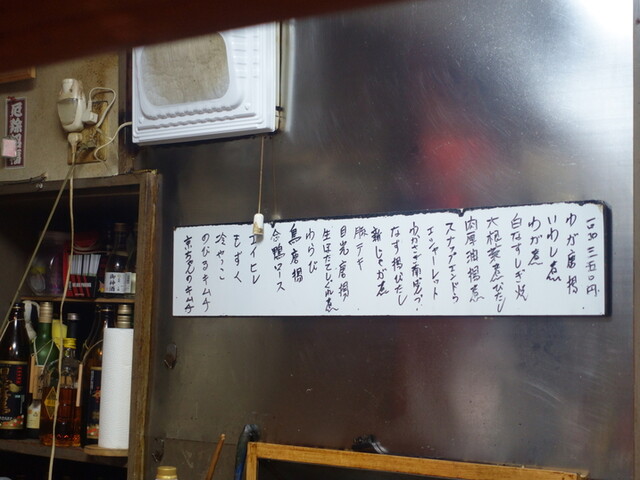 一皿 三五〇円
わが唐揚
いわし煮
わが煮
白なすしぎ焼
大根葉煮びたし
肉厚油揚煮
スナップエンドウ
エシャーレット
わかさぎ南ばんづけ
なす揚びたし
新じゃが煮
豚テキ
目光唐揚
生ほたてしぐれ煮
わらび
鳥唐揚
合鴨ロース
エイヒレ
もずく
冷やっこ
のびるキムチ
京ちゃんのキムチ